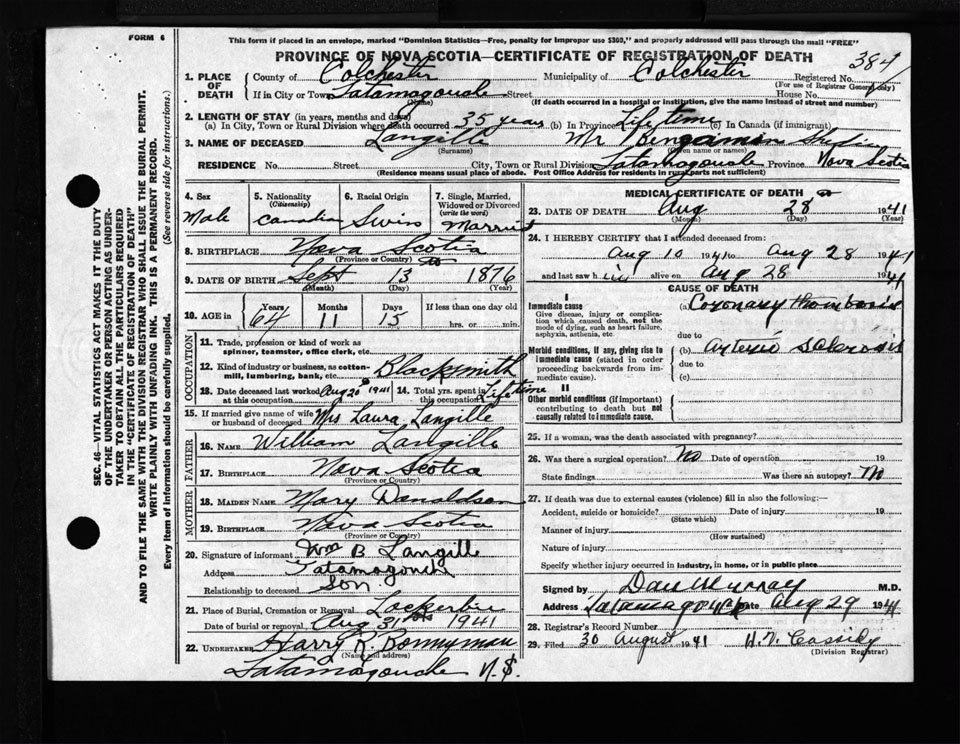 FORM 6
This form if placed in an envelope, marked "Dominion Statistics—Free, penalty for Improper use $300," and properly addressed will pass through the mail "FREE"
PROVINCE OF NOVA SCOTIA—CERTIFICATE OF REGISTRATION OF DEATH
384
1. PLACE OF DEATH County of Colchester Municipality of Colchester Registered No.
(For use of Registrar General only)
If in City or Town Tatamagouche Street House No.
(Name) (If death occurred in a hospital or institution, give the name instead of street and number)
2. LENGTH OF STAY (in years, months and days)
(a) In City, Town or Rural Division where death occurred 35 years (b) In Province Life time (c) In Canada (if immigrant)
3. NAME OF DECEASED Langille Mr Bengamin
(Surname) (Given name or names)
RESIDENCE No. Street City, Town or Rural Division Tatamagouche Province Nova Scotia
(Residence means usual place of abode. Post Office Address for residents in rural parts not sufficient)
4. Sex Male
5. Nationality (Citizenship) Canadian
6. Racial Origin Swiss
7. Single, Married, Widowed or Divorced (write the word) Married
8. BIRTHPLACE Nova Scotia
(Province or Country)
9. DATE OF BIRTH Sept 13 1876
(Month) (Day) (Year)
10. AGE in Years Months Days If less than one day old
64 11 15 hrs. or min.
OCCUPATION
11. Trade, profession or kind of work as spinner, teamster, office clerk, etc.
12. Kind of industry or business, as cotton-mill, lumbering, bank, etc. Blacksmith
13. Date deceased last worked at this occupation Aug 20th 1941
14. Total yrs. spent in this occupation Lifetime
15. If married give name of wife or husband of deceased Mrs Laura Langille
FATHER
16. NAME William Langille
17. BIRTHPLACE Nova Scotia
(Province or Country)
MOTHER
18. MAIDEN NAME Mary Donaldson
19. BIRTHPLACE Nova Scotia
(Province or Country)
20. Signature of informant Wm B Langille
Address Tatamagouche
Relationship to deceased Son
21. Place of Burial, Cremation or Removal Lockerbie
Date of burial or removal Aug 31st 1941
22. UNDERTAKER Harry R. Bonnyman
(Name and address)
Tatamagouche N.S.
MEDICAL CERTIFICATE OF DEATH
23. DATE OF DEATH Aug 28 1941
(Month) (Day) (Year)
24. I HEREBY CERTIFY that I attended deceased from:
Aug 10 1941 to Aug 28 1941
and last saw him alive on Aug 28 1941
CAUSE OF DEATH
I
Immediate cause
Give disease, injury or complication which caused death, not the mode of dying, such as heart failure, asphyxia, asthenia, etc.
(a) Coronary thombosis
due to
Morbid conditions, if any, giving rise to immediate cause (stated in order proceeding backwards from immediate cause).
(b) arterio sclerosis
due to
(c)
II
Other morbid conditions (if important) contributing to death but not causally related to immediate cause.
25. If a woman, was the death associated with pregnancy?
26. Was there a surgical operation? No Date of operation 19
State findings Was there an autopsy?
27. If death was due to external causes (violence) fill in also the following:—
Accident, suicide or homicide? Date of injury 19
(State which)
Manner of injury
(How sustained)
Nature of injury
Specify whether injury occurred in industry, in home, or in public place
Signed by Dan Murray M.D.
Address Tatamagouche Date Aug 29 1941
28. Registrar's Record Number
29. Filed 30 August 1941 H.N. Cassidy
(Division Registrar)
SEC. 46—VITAL STATISTICS ACT MAKES IT THE DUTY
OF THE UNDERTAKER OR PERSON ACTING AS UNDER-
TAKER TO OBTAIN ALL THE PARTICULARS REQUIRED
IN THE "CERTIFICATE OF REGISTRATION OF DEATH"
AND TO FILE THE SAME WITH THE DIVISION REGISTRAR WHO SHALL ISSUE THE BURIAL PERMIT.
WRITE PLAINLY WITH UNFADING INK. THIS IS A PERMANENT RECORD.
Every item of information should be carefully supplied. (See reverse side for instructions.)